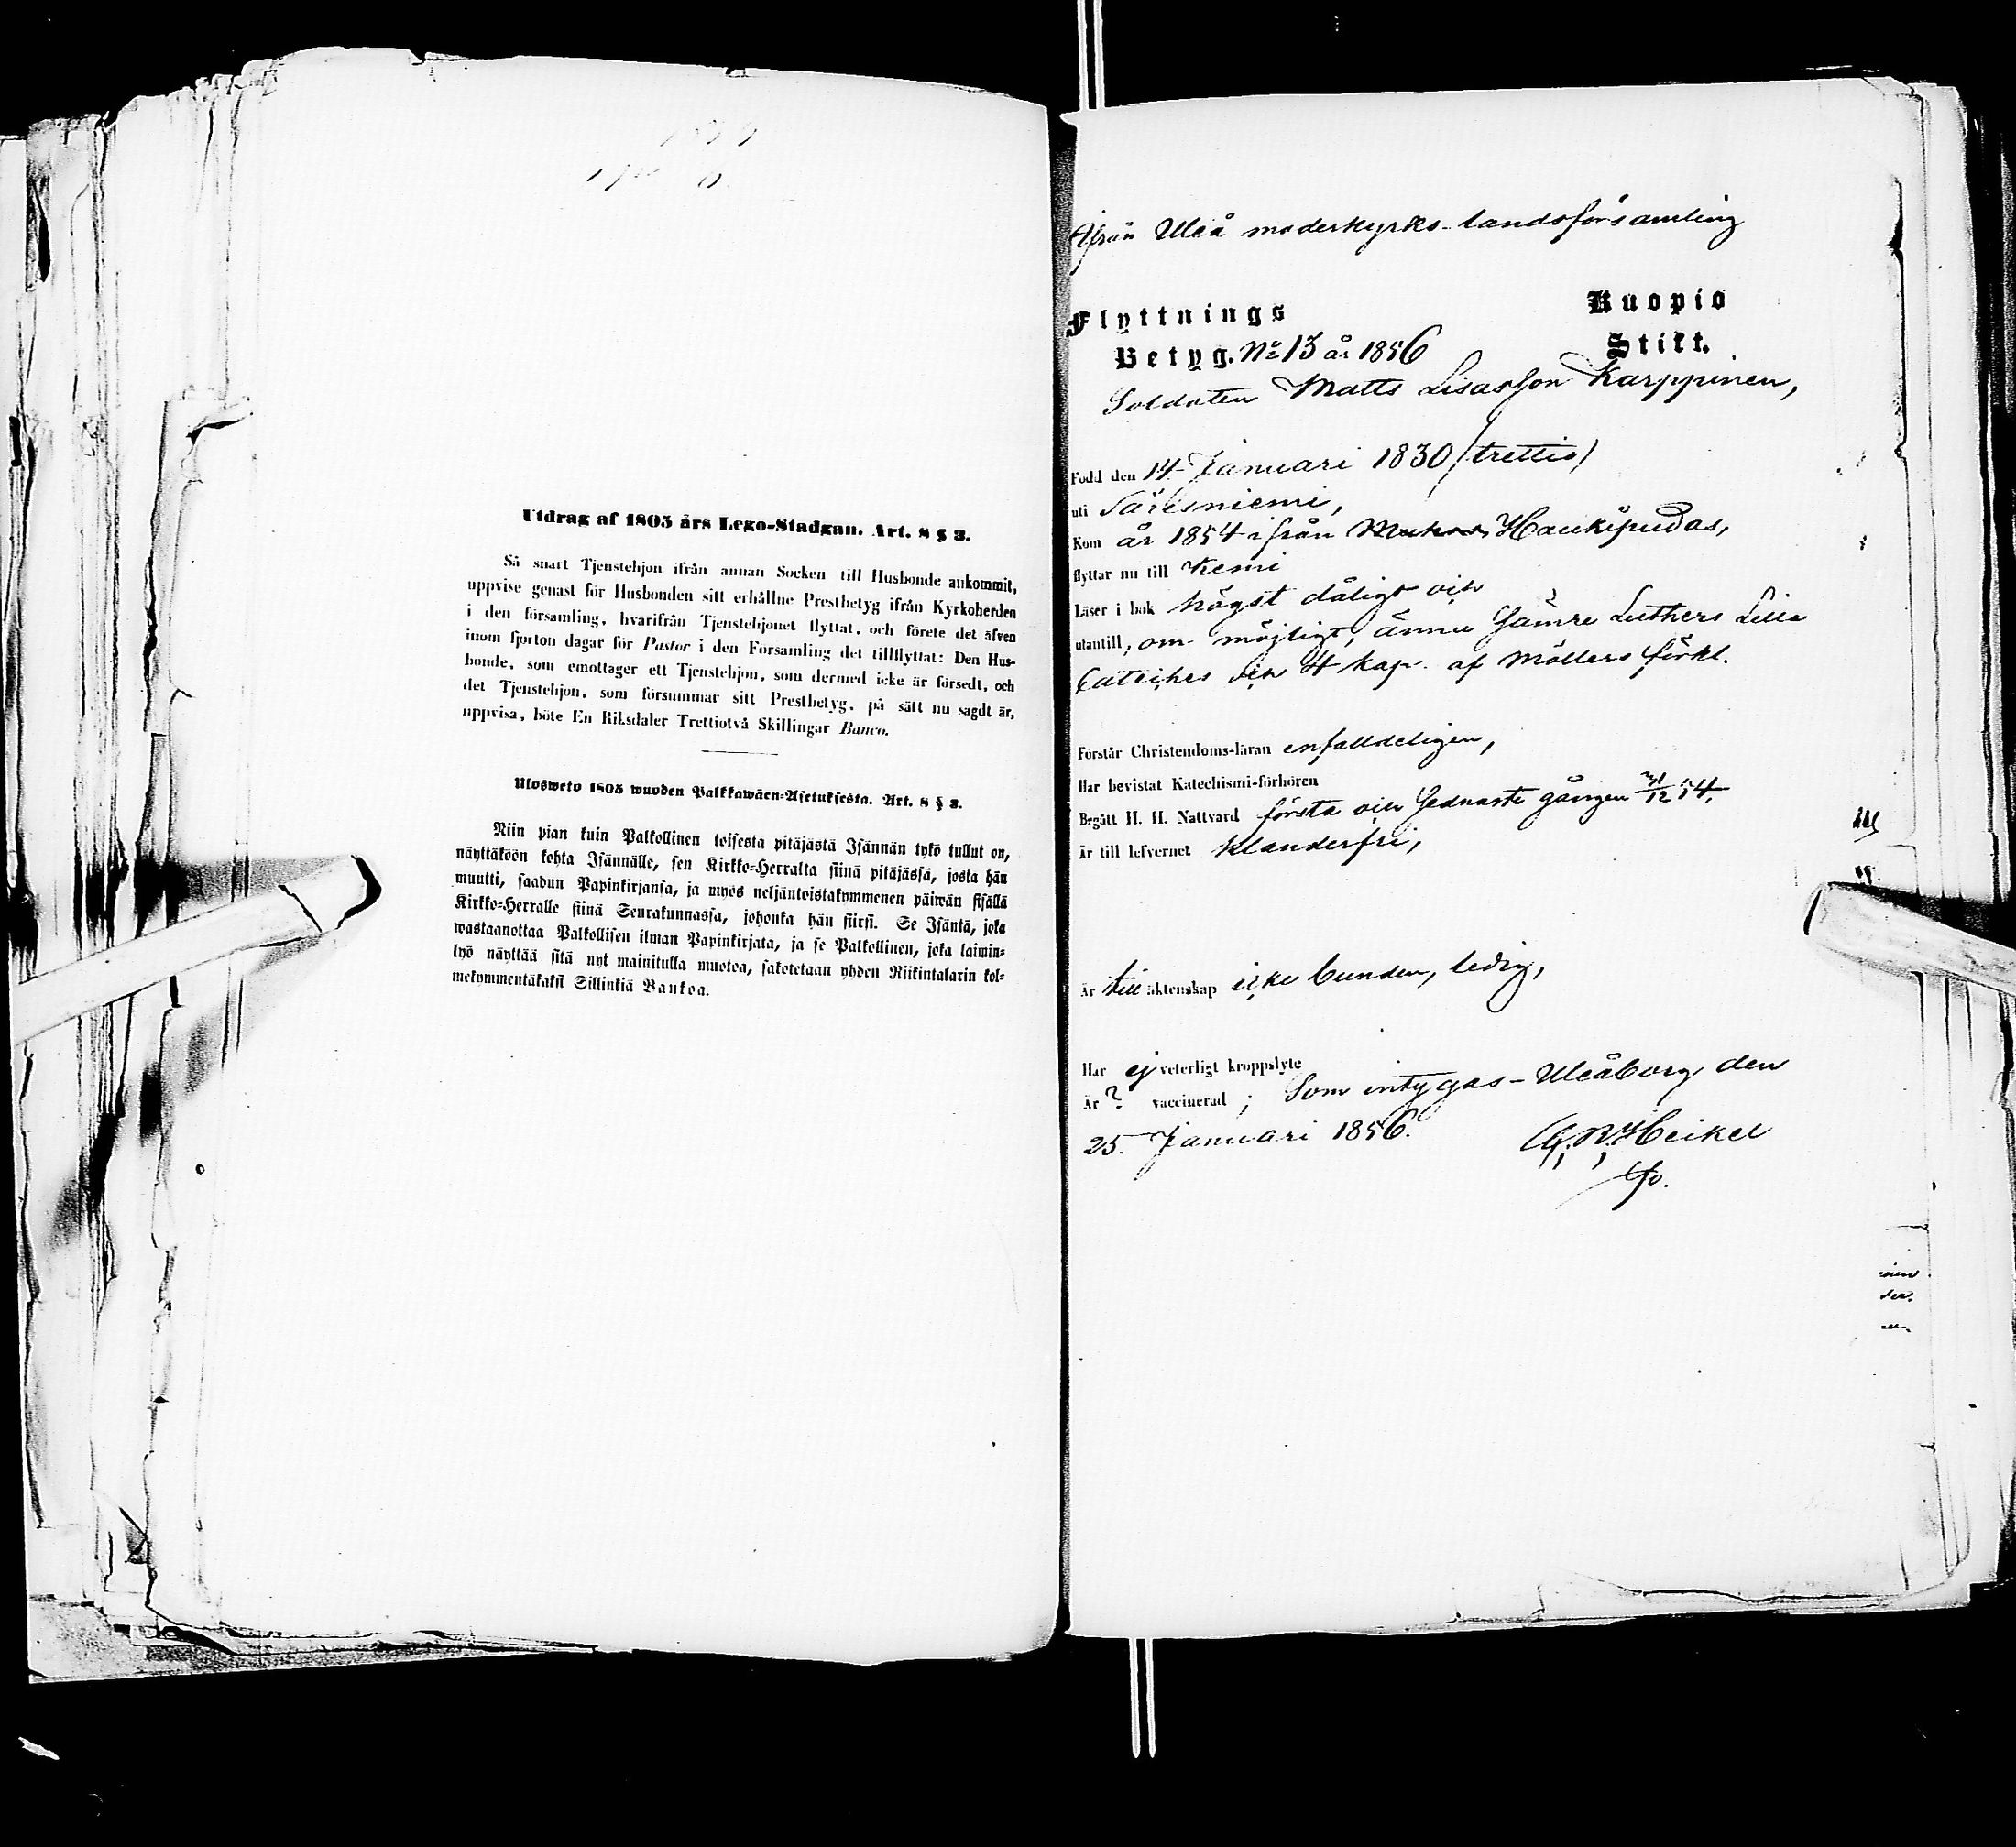 Utdrag af 1805 års Lego-Stadgan. Art. 8 § 3.
Så snart Tjenstehjon ifrån annan Socken till Husbonde ankommit,
uppvise genast för Husbonden sitt erhållne Prestbetyg ifrån Kyrkoherden
i den församling, hvarifrån Tjenstehjonet flyttat, och förete det äfven
inom fjorton dagar för Pastor i den Församling det tillflyttat: Den Hus-
bonde, som emottager ett Tjenstehjon, som dermed icke är försedt, och
det Tjenstehjon, som försummar sitt Prestbetyg, på sätt nu sagdt är,
uppvisa, böte En Riksdaler Trettiotvå Skillingar Banco.
Ulosweto 1805 wuoden Palkkawäen-Asetuksesta. Art. 8 § 3.
Niin pian kuin Palkollinen toisesta pitäjästä Isännän tykö tullut on,
näyttäköön kohta Isännälle, sen Kirkko-Herralta siinä pitäjässä, josta hän
muutti, saadun Papinkirjansa, ja myös neljäntoistakymmenen päiwän sisällä
Kirkko-Herralle siinä Seurakunnassa, johonka hän siirsi. Se Isäntä, joka
wastaanottaa Palkollisen ilman Papinkirjata, ja se Palkollinen, joka laimin-
lyö näyttää sitä nyt mainitulla muotoa, sakotetaan yhden Riikintalarin kol-
mekymmentäkaksi Sillinkiä Bankoa.
Ifrån Uleå moderkyrko-landsförsamling
Flyttnings Kuopio
Betyg. No 13 år 1856 Stift.
Soldaten Matts Lisasson Karppinen,
Född den 14 Januari 1830 (trettio)
uti Säresniemi,
Kom år 1854 ifrån Haukipudas,
flyttar nu till Kemi
Läser i bok högst dåligt och
utantill, om möjligt, ännu sämre Luthers Lilla
Cateches och 4 kap. af Möllers förkl.
Förstår Christendoms-läran enfalldeligen,
Har bevistat Katechismi-förhören
Begått H. H. Nattvard första och sednaste gången 31/12 54.
Är till lefvernet klanderfri,
Är till äktenskap icke bunden, ledig,
Har ej veterligt kroppslyte
Är ? vaccinerad ; Som intygas - Uleåborg den
25. Januari 1856. Heikel